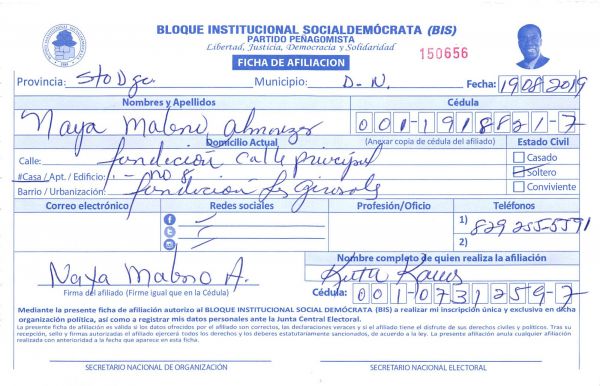 BLOQUE INSTITUCIONAL SOCIALDEMÓCRATA (BIS)
PARTIDO PEÑAGOMISTA
Libertad, Justicia, Democracia y Solidaridad
150656
FICHA DE AFILIACION
Provincia: Sto Dgo. Municipio: D-N. Fecha: 19/08/2019
Nombres y Apellidos Cédula
Naya Maleno Almonzar 001-1918821-7
Domicilio Actual (Anexar copia de cédula del afiliado) Estado Civil
Calle: fundición Calle Principal Casado
#Casa / Apt. / Edificio: - no 8 Soltero
Barrio / Urbanización: fundición Conviviente
Correo electrónico Redes sociales Profesión/Oficio Teléfonos
1) 829 255-5591
2)
Nombre completo de quien realiza la afiliación
Naya A. Ruth
Firma del afiliado (Firme igual que en la Cédula) Cédula: 001-0731259-7
Mediante la presente ficha de afiliación autorizo al BLOQUE INSTITUCIONAL SOCIAL DEMÓCRATA (BIS) a realizar mi inscripción única y exclusiva en dicha
organización política, así como a registrar mis datos personales ante la Junta Central Electoral.
La presente ficha de afiliación es válida si los datos ofrecidos por el afiliado son correctos, las declaraciones veraces y si el afiliado tiene el disfrute de sus derechos civiles y políticos. Tras su
recepción, sello y firmas autorizadas el afiliado ejercerá todos los derechos y los deberes estatutariamente sancionados, de acuerdo a la ley. La presente afiliación anula cualquier afiliación
realizada con anterioridad a la fecha que aparece en esta ficha.
SECRETARIO NACIONAL DE ORGANIZACIÓN SECRETARIO NACIONAL ELECTORAL